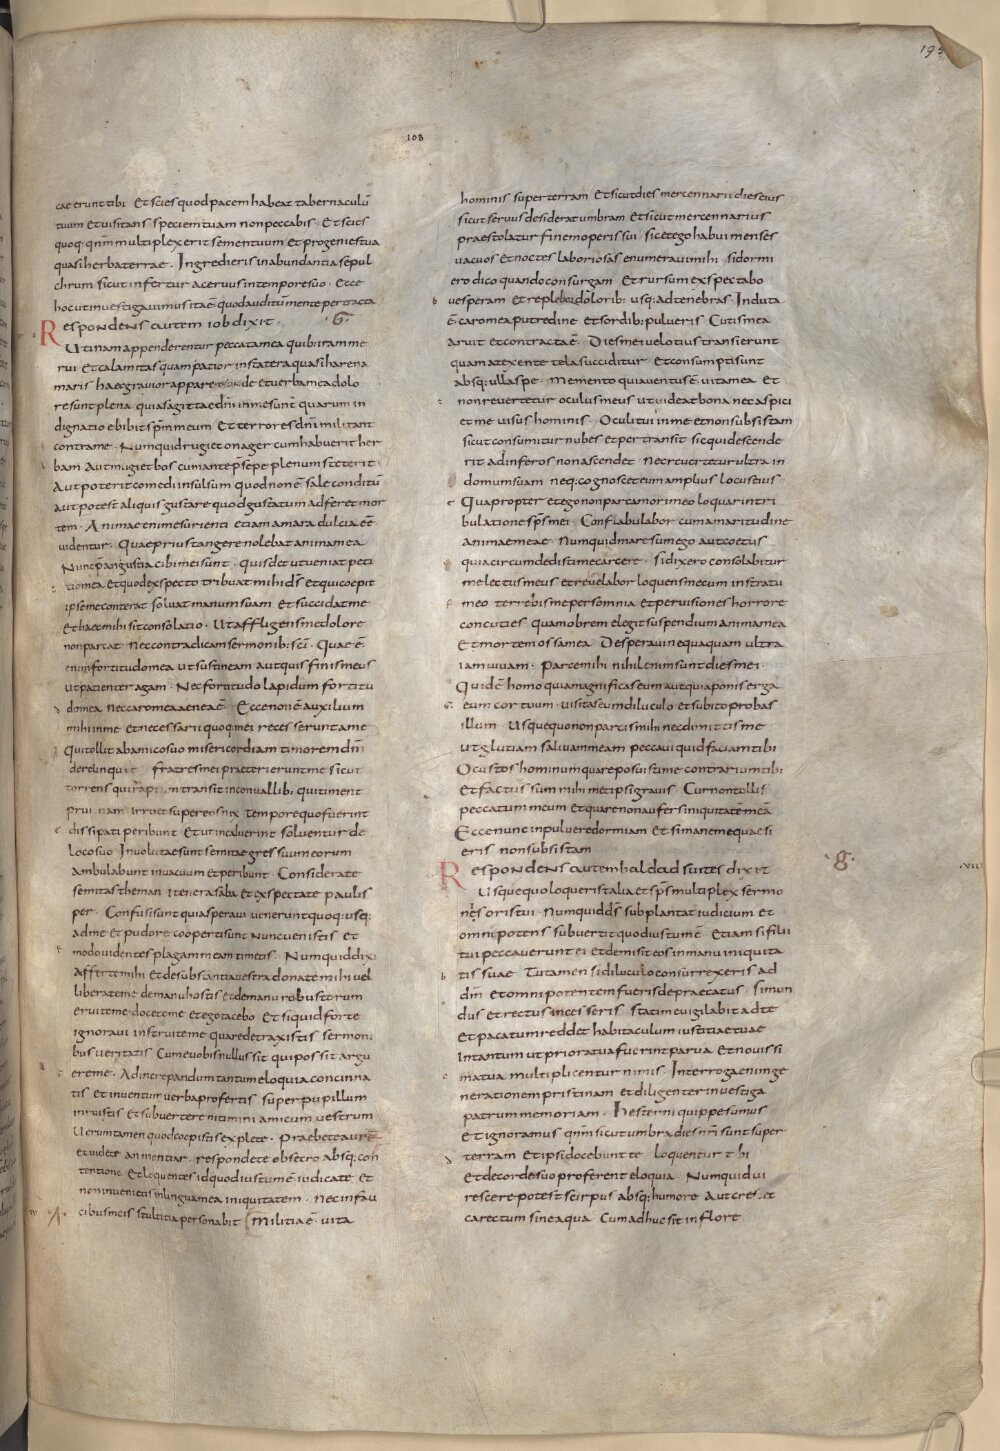 195
108
cae erunt tibi Et scies quod pacem habeat tabernaculū
tuum et uisitans speciem tuam non peccabis · Et scies
quoq; qnm̄ multiplex erit semen tuum et progenies tua
quasi herba terrae · Ingredieris in abundantia sepul
chrum sicut infertur aceruus in tempore suo · Ecce
hoc ut inuestigauimus ita ē quod auditū mente pertracta
Respondens autem iob dixit · 6·
Utinam appenderentur peccata mea quib; iram me
rui · Et calamitas quam patior in statera quasi harena
maris haec grauior appareret unde et uerba mea dolo
re sunt plena quia sagittae dn̄i in me sunt quarum in
dignatio ebibit spm̄ meum Et terrores dn̄i militant
contra me · Numquid rugiet onager cum habuerit her
bam Aut mugiet bos cum ante p̄sepe plenum steterit
Aut poterit comedi insulsum quod non ē sale conditū
aut potest aliquis gustare quod gustatum adferet mor
tem · Animae enim esurienti etiam amara dulcia eē
uidentur Quae prius tangere nolebat anima mea
Nunc p̄ angustia cibi mei sunt · Quis det ut ueniat peti
tio mea et quod expecto tribuat mihi ds̄ Et qui coepit
ipse me conterat soluat manum suam Et succidat me
Et haec mihi sit consolatio · Ut affligens me dolore
non parcat Nec contradicam sermonib; sc̄i · Quae ē
enim fortitudo mea ut sustineam aut quis finis meus
ut patienter agam · Nec fortitudo lapidum fortitu
do mea nec caro mea aenea ē Ecce non ē auxilium
mihi in me et necessarii quoq; mei recesserunt a me
Qui tollit ab amico suo misericordiam timorem dn̄i
derelinquit fratres mei praeterierunt me sicut
torrens qui raptim transit in conuallib; qui timent
pruinam irruet super eos nix Tempore quo fuerint
dissipati peribunt Et ut incaluerint soluentur de
loco suo Inuolutae sunt semitae gressuum eorum
ambulabunt in uacuum et peribunt Considerate
semitas theman itinera saba et expectate paulis
per Confusi sunt quia speraui uenerunt quoq; usq;
ad me et pudore cooperti sunt Nunc uenistis et
modo uidentes plagam meam timetis · Numquid dixi
affertemihi et de substantia uestra donate mihi uel
liberate me de manu hostis et de manu robustorum
eruite me docete me et ego tacebo Et si quid forte
ignoraui instruite me quare detraxistis sermoni
bus ueritatis Cum e uobis nullus sit qui possit argu
ere me · Ad increpandum tantum eloquia concinna
tis et in uentum uerba profertis super pupillum
inruistis et subuertere nitimini amicum uestrum
Uerumtamen quod coepistis explete · Praebete aurē
et uidete an mentiar · respondete obsecro absq; con
tentione Et loquentes id quod iustum ē iudicate Et
non inuenietis in lingua mea iniquitatem Nec in fau
cibus meis stultitia personabit Militia ē uita
hominis super terram Et sicut dies mercennarii dies eius
sicut seruus desiderat umbram Et sicut mercennarius
praestolatur finem operis sui sic et ego habui menses
uacuos et noctes laboriosas enumeraui mihi si dormi
ero dico quando consurgam Et rursum exspectabo
uesperam et replebor dolorib; usq; ad tenebras · Induta
ē caro mea putredine et sordib; pulueris Cutis mea
aruit et contracta ē Dies mei uelotius transierunt
quam a texente tela succiditur Et consumpti sunt
absq; ulla spe Memento quia uentus ē uita mea Et
non reuertetur oculus meus ut uideat bona nec aspici
et me uisus hominis Oculi tui in me et non subsistam
sicut consumitur nubes et pertransit sic qui descende
rit ad inferos non ascendet Nec reuertetur ultra in
domum suam neq; cognoscet eum amplius locus eius
Quapropter et ego non parcam ori meo loquar in tri
bulatione sps̄ mei Confabulabor cum amaritudine
animae meae Numquid mare sum ego aut coetus
quia circumdedisti me carcere Si dixero consolabitur
me lectus meus et reuelabor loquens mecum in stratu
meo terrebis me per somnia et per uisiones horrore
concuties quam ob rem elegit suspendium anima mea
Et mortem ossa mea Desperaui nequaquam ultra
iam uiuam Parce mihi nihil enim sunt dies mei ·
Quid ē homo quia magnificas eum aut quia ponis erga
eum cor tuum uisitas eum diluculo et subito probas
illum Usquequo non parcis mihi nec dimittis me
ut glutiam saliuam meam peccaui quid faciam tibi
O custos hominum quare posuisti me contrarium tibi
et factus sum mihimetipsi grauis Cur non tollis
peccatum meum et quare non aufers iniquitatē meā
Ecce nunc in puluere dormiam et si mane me quaesi
eris non subsistam
Respondens autem baldad suites dixit 8·
Usquequo loqueris talia et sps̄ multiplex sermo
nes oris tui Numquid ds̄ subplantat iudicium et
omnipotens subuertit quod iustum ē Etiam si filii
tui peccauerunt ei et demisit eos in manu iniquita
tis suae Tu tamen si diluculo consurrexeris ad
dm̄ et omnipotentem fueris depraecatus · Si mun
dus et rectus incesseris statim euigilabit ad te
et pacatum reddet habitaculum iustitiae tuae
In tantum ut priora tua fuerint parua Et nouissi
ma tua multiplicentur nimis Interroga enim ge
nerationem pristinam et diligenter inuestiga
patrum memoriam Hesterni quippe sumus
Et ignoramus qnm̄ sicut umbra dies nr̄i sunt super
terram Et ipsi docebunt te loquentur tibi
Et de corde suo proferent eloquia Numquid ui
rescere potest scirpus absq; humore Aut crescet
carectum sine aqua Cum adhuc sit in flore